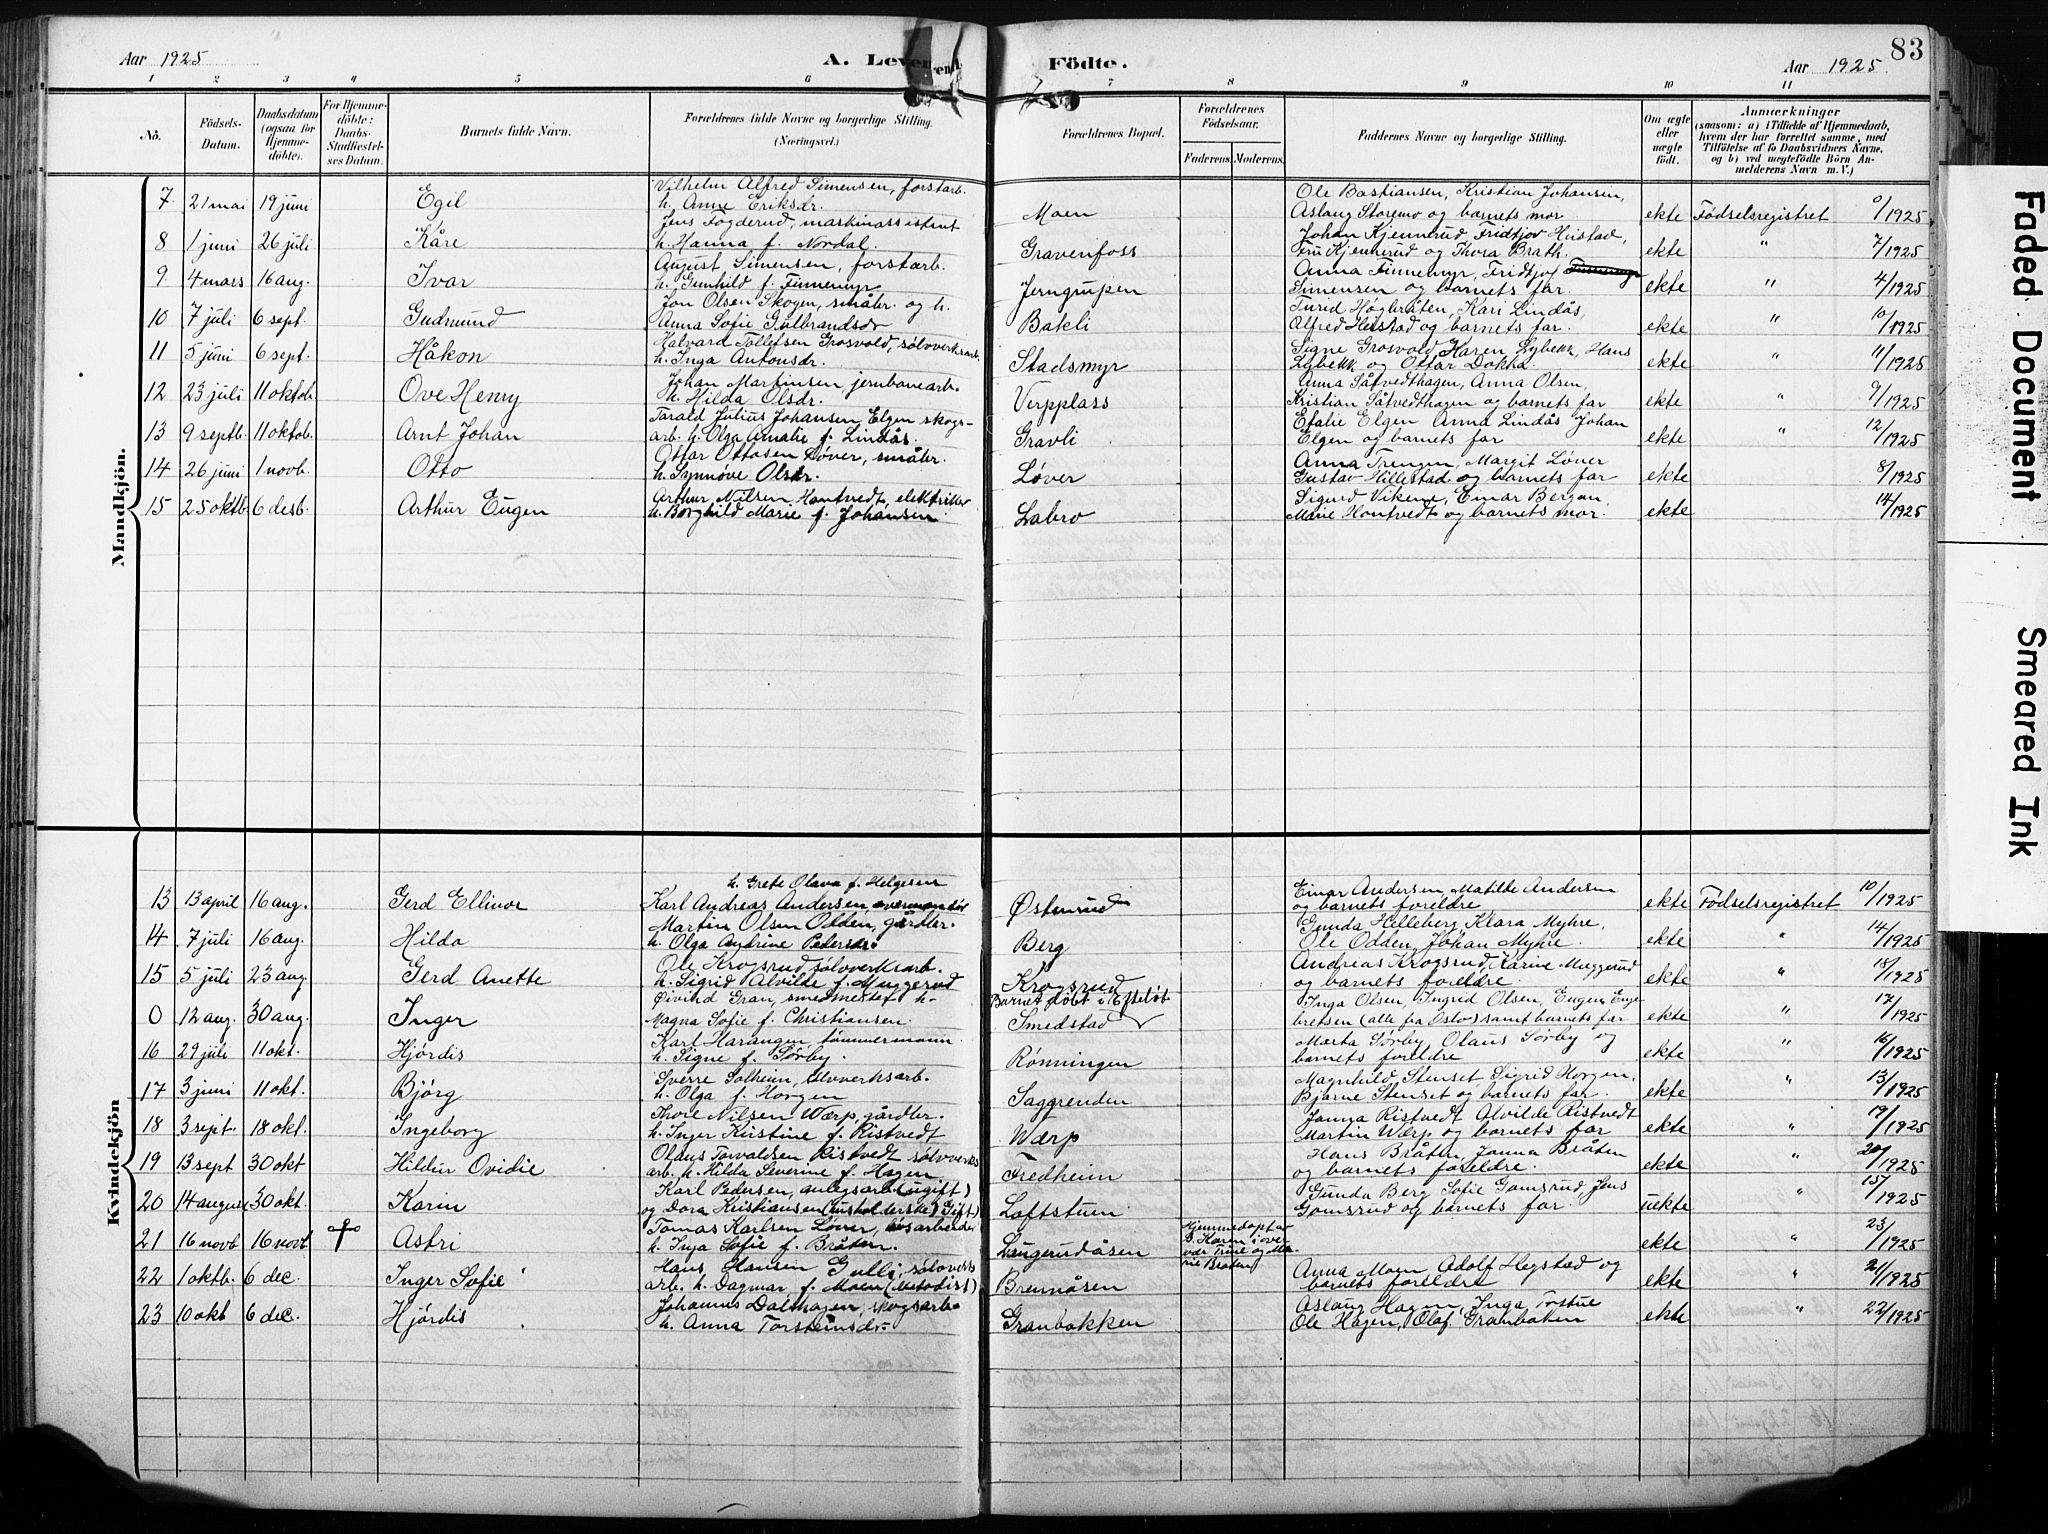 Aar 1925
A. Leven
rend
Födte.
Aar 1925
83
1 2 3 4 5 6 7 8 9 10 11
No.
Födsels-
Datum.
Daabsdatum
(ogsaa for
Hjemme-
döbte).
For Hjemme-
döbte:
Daabs-
Stadfæstel-
ses Datum.
Barnets fulde Navn.
Forældrenes fulde Navne og borgerlige Stilling.
(Næringsvei.)
Forældrenes Bopæl.
Forældrenes
Födselsaar.
Faderens. Moderens.
Faddernes Navne og borgerlige Stilling.
Om ægte
eller
uægte
födt.
Anmærkninger
(saasom: a) i Tilfælde af Hjemmedaab,
hvem der har forrettet samme, med
Tilföielse af to Daabsvidners Navne,
og b) ved uægtefödte Börn An-
melderens Navn m. V.)
Mandkjön.
7 21 mai 19 juni Egil
Vilhelm Alfred Simensen, forstarb.
h. Anne Eriksdr.
Moen
Ole Bastiansen, Kristian Johansen,
Aslaug Storemo og barnets mor
ekte Födselsregistret /1925
8 1 juni 26 juli Kåre
Jens Fogderud, maskinassistent
h. Hanna f. Nordal.
Gravenfoss
Johan Kjennerud, Fridtjov Heistad,
Fru Kjennerud og Thora Brath.
ekte " 7/1925
9 4 mars 16 aug. Ivar
August Simensen, forstarb.
h. Gunhild f. Finnemyr
Jerngruben
Anna Finnemyr, Fridtjof
Simensen og barnets far.
ekte " 4/1925
10 7 juli 6 sept. Gudmund
Jon Olsen Skogen, småbr. og h.
Anna Sofie Gulbrandsdr
Bakli
Turid Høgbråten, Kari Lindås,
Alfred Heistad og barnets far.
ekte " 10/1925
11 5 juni 6 sept. Håkon
Halvard Tollefsen Grosvold, sølvverksarb.
h. Inga Antonsdr.
Stadsmyr
Signe Grosvold, Karen Lybekk, Hans
Lybekk og Ottar Dokka.
ekte " 11/1925
12 23 juli 11 oktob. Ove Henry
Johan Martinsen, jernbanearb.
h. Hilda Olsdr.
Verpplass
Anna Såtvedthagen, Anna Olsen,
Kristian Såtvedthagen og barnets far
ekte " 9/1925
13 9 septb. 11 oktob. Arnt Johan
Tarald Julius Johansen Elgen skogs-
arb. h. Olga Amalie f. Lindås.
Gravli
Efalie Elgen Anna Lindås Johan
Elgen og barnets far
ekte " 12/1925
14 26 juni 1 novb. Otto
Ottar Ottosen Løver, småbr.
h. Synnøve Olsdr.
Løver
Anna Trengen, Margit Løver
Gustav Hillestad og barnets far
ekte " 8/1925
15 25 oktb. 6 desb. Arthur Eugen
Arthur Nilsen Hontvedt, elektriker
h. Borghild Marie f. Johansen
Labro
Sigurd Vikene, Einar Bergan
Marie Hontvedt og barnets mor.
ekte 14/1925
Kvindekjön
13 13 april 16 aug. Gerd Ellinor
h. Grete Olava f. Helgesen
Karl Andreas Andersen, overmontør
Østenrud
Einar Andersen, Matilde Andersen
og barnets foreldre
ekte Födselsregistret 10/1925
14 7 juli 16 aug. Hilda
Martin Olsen Odden, gårdbr.
h. Olga Andrine Pedersdr.
Berg
Gunda Helleberg Klara Myhre,
Ole Odden, Johan Myhre.
ekte " 14/1925
15 5 juli 23 aug. Gerd Anette
Ole Krogsrud, sølvverksarb.
h. Sigrid Alvilde f. Muggerud
Krogsrud
Andreas Krogsrud, Karine Muggerud
og barnets foreldre.
ekte " 18/1925
0 12 aug. 30 aug. Inger
Øivind Gran, smedmester h.
Magna Sofie f. Christiansen.
Barnet døbt i Efteløt
Smedstad
Inga Olsen, Ingrid Olsen, Eugen Enge-
bretsen (alle fra Oslo) samt barnets far
ekte " 17/1925
16 29 juli 11 okt. Hjørdis
Karl Harangen, tømmermann
h. Signe f. Sørby.
Rønningen
Marta Sørby, Olaus Sørby og
barnets foreldre
ekte " 16/1925
17 3 juni 11 okt. Bjørg
Sverre Solheim, sølvverksarb.
h. Olga f. Horgen
Saggrenden
Magnhild Stenset, Sigrid Horgen,
Bjarne Stenset og barnets far.
ekte " 13/1925
18 3 sept. 18 okt. Ingeborg
Thore Nilsen Wærp, gårdbr.
h. Inger Kirstine f. Ristvedt
Wærp
Janna Ristvedt Alvilde Ristvedt
Martin Wærp og barnets far
ekte " 19/1925
19 13 sept 30 okt Hildur Ovidie
Olaus Torvaldsen Ristvedt sølvverks
arb. h. Hilda Severine f. Hagen
Fredheim
Hans Bråten, Janna Bråten
og barnets foreldre.
ekte " 20/1925
20 14 august 30 okt. Karin
Karl Pedersen, anlegsarb. (ugift)
og Dora Kristiansen (husholderske) (gift)
Loftstuen
Gunda Berg Sofie Gomsrud, Jens
Gomsrud og barnets far.
uekte " 15/1925
21 16 novb 16 novb † Astri
Tomas Karlsen Løver, arbeider
h. Inga Sofie f. Bråten.
Laugerudåsen
Hjemmedøpt av
Karin i over-
vær Trine og Ma-
rie Bråten
ekte 23/1925
22 1 oktb. 6 dec. Inger Sofie
Hans Hansen Gulli, sølvverks
arb. h. Dagmar, f. Moen (Metodist)
Brennåsen
Anna Moen Adolf Hegstad og
barnets foreldre
ekte " 21/1925
23 10 okt 6 dec. Hjørdis
Johannes Dalhagen, skogsarb.
h. Anna Torsteinsdr.
Granbakken
Aslaug Hagen, Inga Torstue
Ole Hagen, Olaf Granbakken
ekte " 22/1925
Faded Document
Smeared Ink